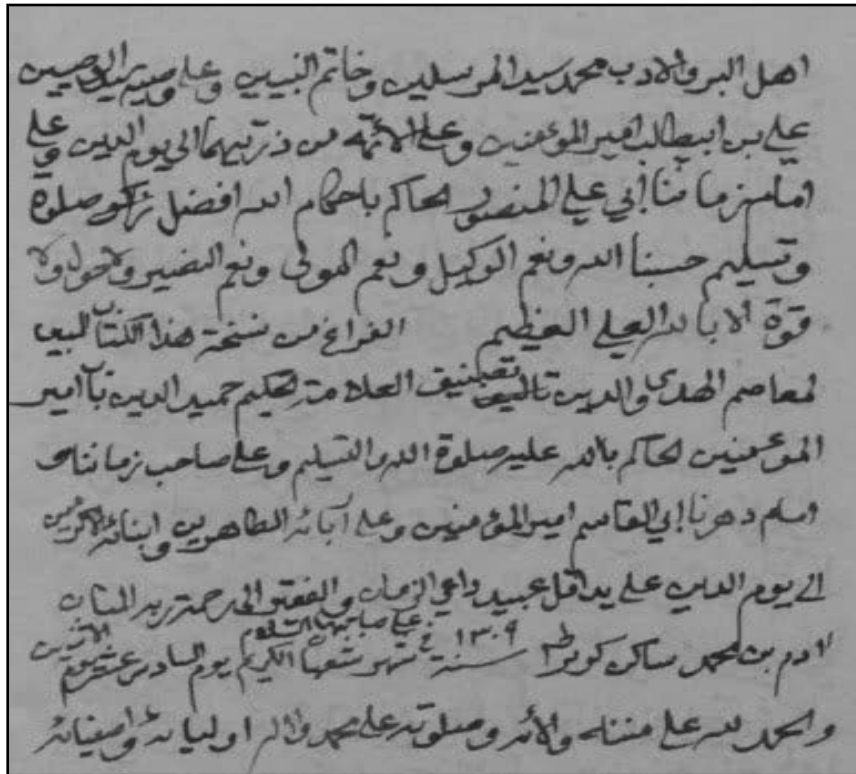 اهل البر والادب محمد سيد المرسلين وخاتم النبيين وعلى وصيه سيد الوصيين
علي بن ابيطالب امير المؤمنين وعلى الائمة من ذريتهما الى يوم الدين وعلى
امام زماننا أبي علي المنصور الحاكم باحكام الله افضل صلوة
وتسليم حسبنا الله ونعم الوكيل ونعم المولى ونعم النصير ولا حول ولا
قوة الا بالله العلي العظيم الفراغ من نسخة هذا الكتاب
لمعاصم الهدى والدين تاليف تصنيف العلامة لحكيم حميد الدين امير
المؤمنين لحاكم بالله عليه صلوة الله والتسليم وعلى صاحب زماننا و
امام دهرنا إبي القاسم امير المؤمنين وعلى آبائه الطاهرين وابنائه الاكرمين
الى يوم الدين على يد اقل عبيد داعي الزمان والفقير الى رحمة ربه المنان
ادم بن محمد ساكن سنة ١٣٠٩ في شهر شعبان الكريم على صاحبها السلام يوم السادس عشر يوم الاثنين
والحمد لله على مننه والائه وصلوته على محمد واله اوليائه واصفيائه